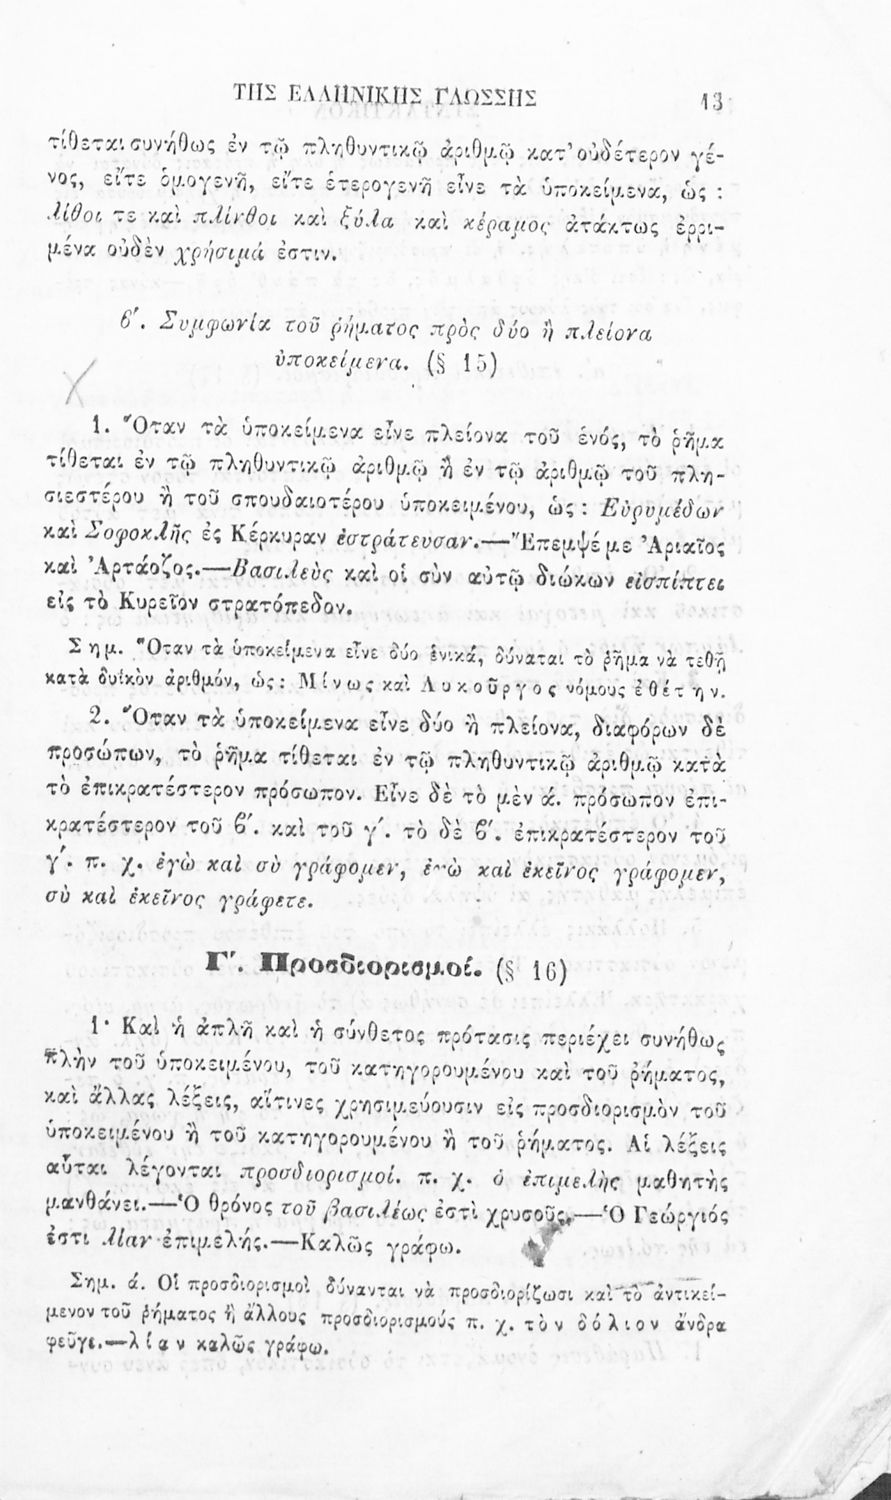 ΤΗΣ ΕΛΛΗΝΙΚΗΣ ΓΛΩΣΣΗΣ 13
τίθεται συνήθως ἐν τῷ πληθυντικῷ ἀριθμῷ κατ' οὐδέτερον γέ-
νος, εἴτε ὁμογενῆ, εἴτε ἑτερογενῆ εἶνε τὰ ὑποκείμενα, ὡς :
λίθοι τε καὶ πλίνθοι καὶ ξύλα καὶ κέραμος ἀτάκτως ἐρρι-
μένα οὐδὲν χρήσιμά ἐστιν.
β΄. Συμφωνία τοῦ ῥήματος πρὸς δύο ἢ πλείονα
ὑποκείμενα. (§ 15)
1. Ὅταν τὰ ὑποκείμενα εἶνε πλείονα τοῦ ἑνός, τὸ ῥῆμα
τίθεται ἐν τῷ πληθυντικῷ ἀριθμῷ ἢ ἐν τῷ ἀριθμῷ τοῦ πλη-
σιεστέρου ἢ τοῦ σπουδαιοτέρου ὑποκειμένου, ὡς : Εὐρυμέδων
καὶ Σοφοκλῆς ἐς Κέρκυραν ἐστράτευσαν.—Ἔπεμψέ με Ἀριαῖος
καὶ Ἀρτάοζος.—Βασιλεὺς καὶ οἱ σὺν αὐτῷ διώκων εἰσπίπτει
εἰς τὸ Κυρεῖον στρατόπεδον.
Σημ. Ὅταν τὰ ὑποκείμενα εἶνε δύο ἑνικά, δύναται τὸ ῥῆμα νὰ τεθῇ
κατὰ δυϊκὸν ἀριθμόν, ὡς : Μίνως καὶ Λυκοῦργος νόμους ἐθέτην.
2. Ὅταν τὰ ὑποκείμενα εἶνε δύο ἢ πλείονα, διαφόρων δὲ
προσώπων, τὸ ῥῆμα τίθεται ἐν τῷ πληθυντικῷ ἀριθμῷ κατὰ
τὸ ἐπικρατέστερον πρόσωπον. Εἶνε δὲ τὸ μὲν ά. πρόσωπον ἐπι-
κρατέστερον τοῦ β΄. καὶ τοῦ γ΄. τὸ δὲ β΄. ἐπικρατέστερον τοῦ
γ΄. π. χ. ἐγὼ καὶ σὺ γράφομεν, ἐγὼ καὶ ἐκεῖνος γράφομεν,
σὺ καὶ ἐκεῖνος γράφετε.
Γ΄. Προσδιορισμοί. (§ 16)
1· Καὶ ἡ ἁπλῆ καὶ ἡ σύνθετος πρότασις περιέχει συνήθως
πλὴν τοῦ ὑποκειμένου, τοῦ κατηγορουμένου καὶ τοῦ ῥήματος,
καὶ ἄλλας λέξεις, αἵτινες χρησιμεύουσιν εἰς προσδιορισμὸν τοῦ
ὑποκειμένου ἢ τοῦ κατηγορουμένου ἢ τοῦ ῥήματος. Αἱ λέξεις
αὗται λέγονται προσδιορισμοί. π. χ. ὁ ἐπιμελὴς μαθητὴς
μανθάνει.—Ὁ θρόνος τοῦ βασιλέως ἐστὶ χρυσοῦς.—Ὁ Γεώργιός
ἐστι λίαν ἐπιμελής.—Καλῶς γράφω.
Σημ. ά. Οἱ προσδιορισμοὶ δύνανται νὰ προσδιορίζωσι καὶ τὸ ἀντικεί-
μενον τοῦ ῥήματος ἢ ἄλλους προσδιορισμούς π. χ. τὸν δόλιον ἄνδρα
φεῦγε.—λίαν καλῶς γράφω.